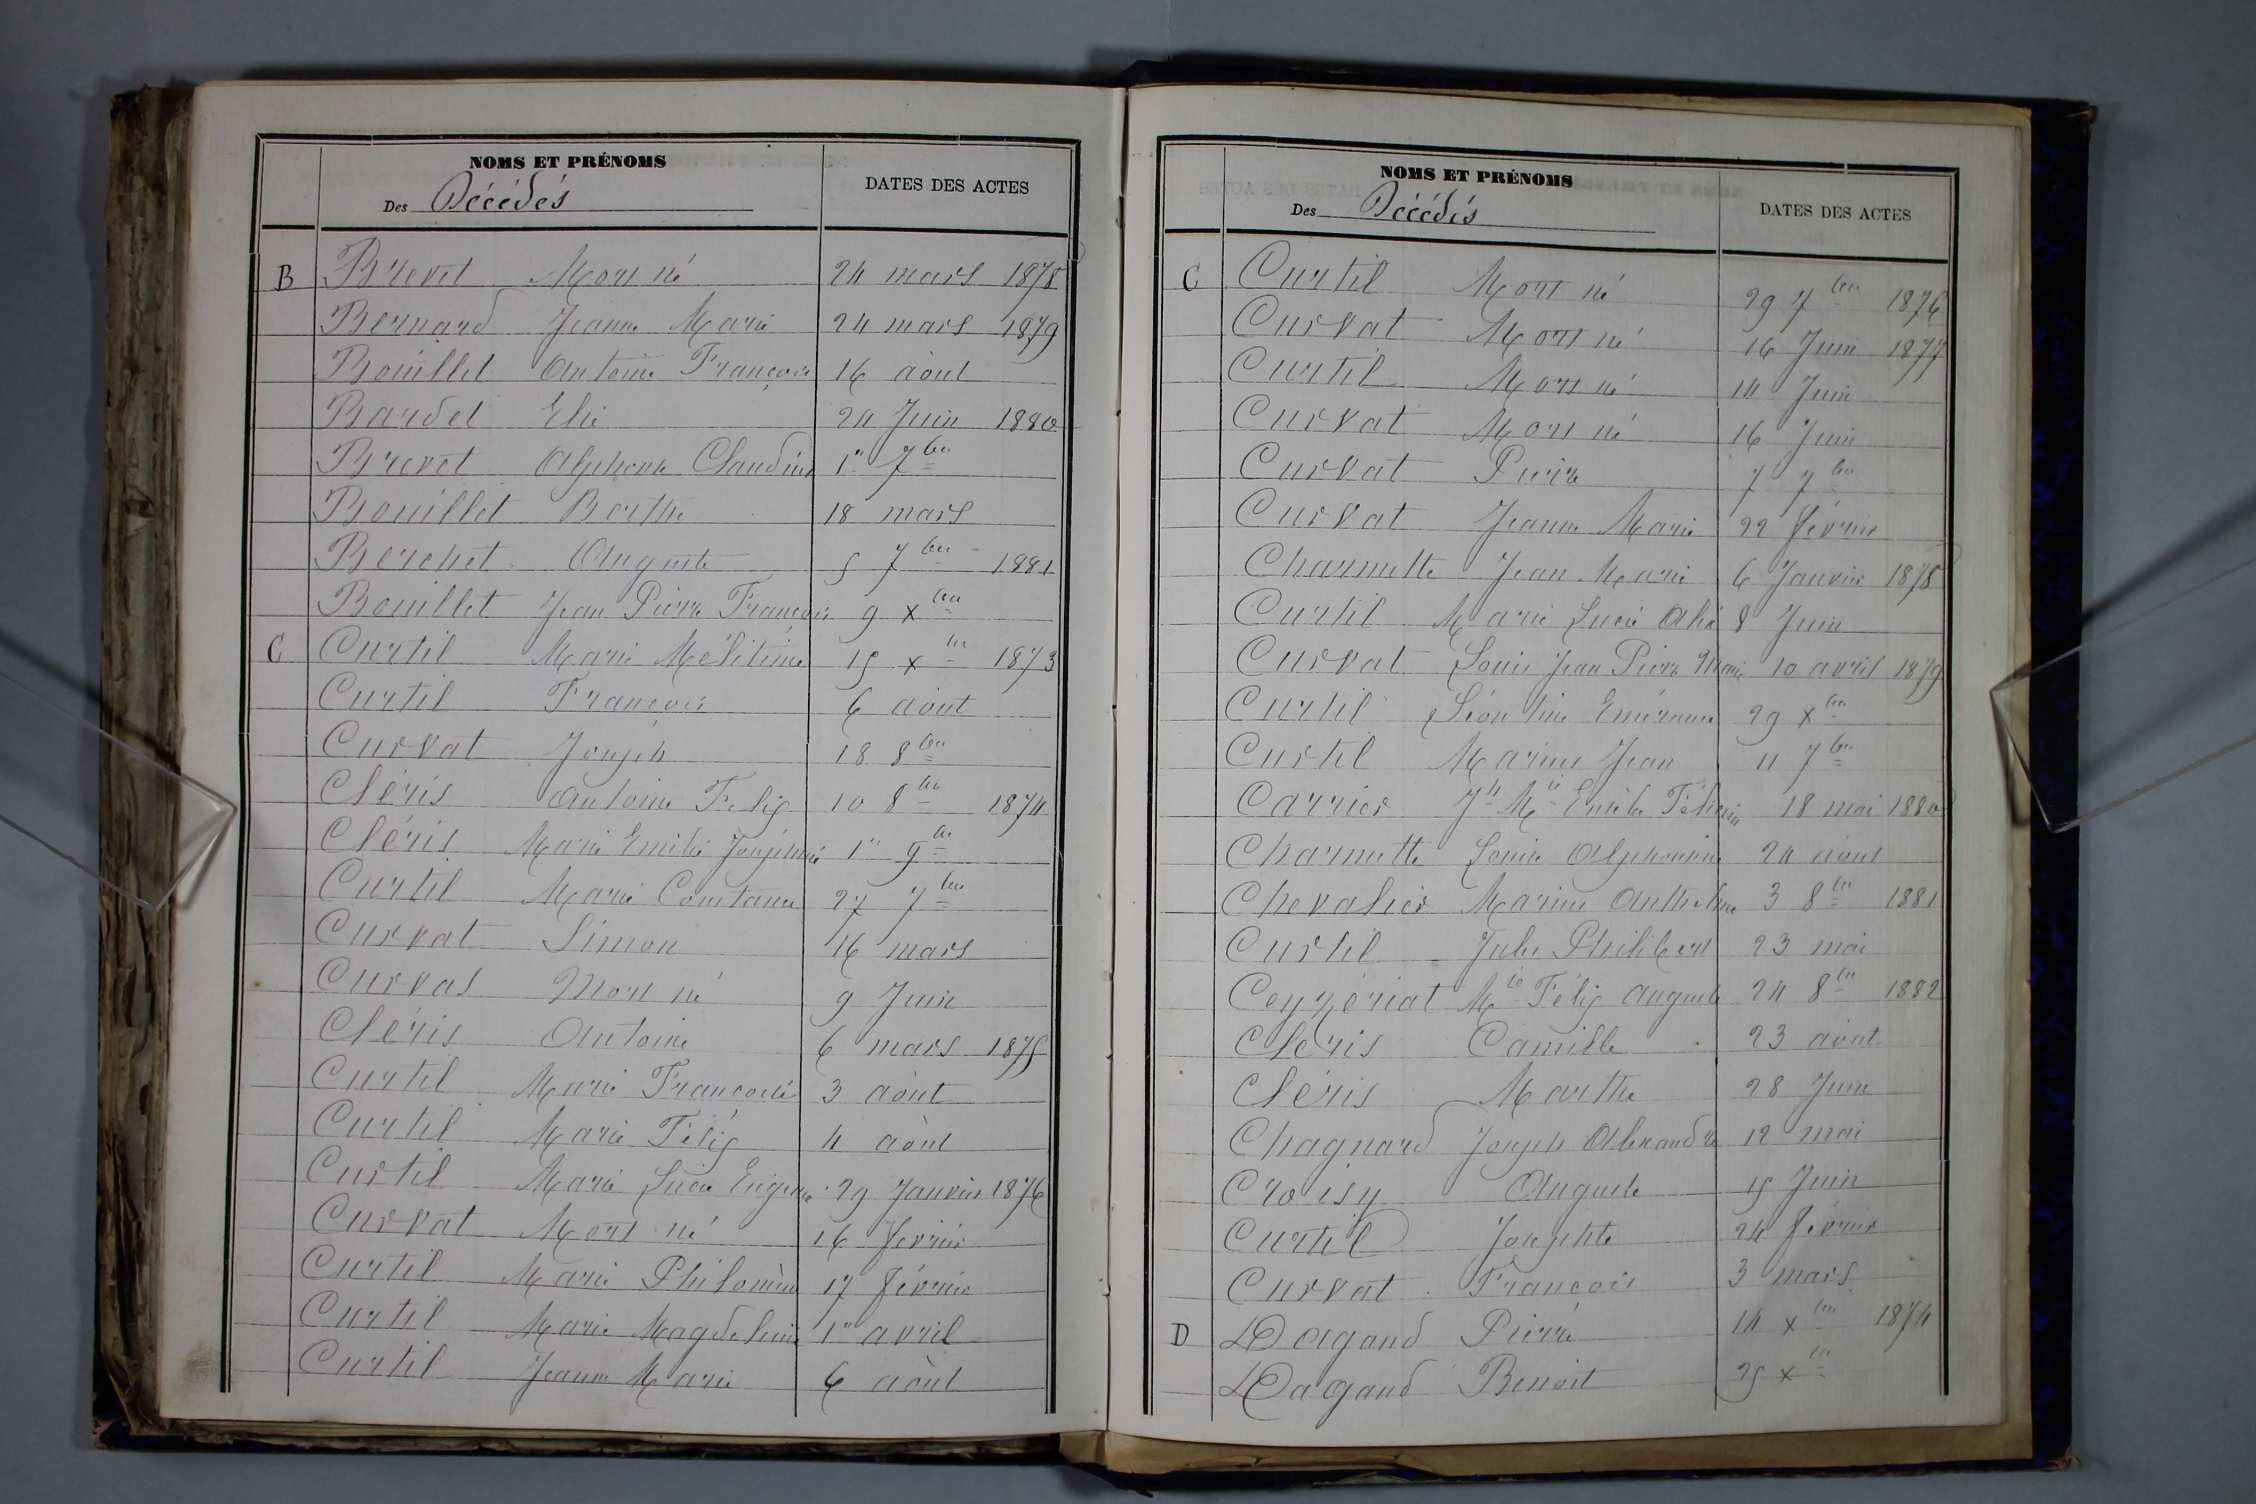 NOMS ET PRÉNOMS
Des Décédés
DATES DES ACTES
B Brevet Mort né 24 mars 1878
Bernard Jeanne Marie 24 mars 1879
Bouillet Antoine François 16 août
Bardet Elie 24 Juin 1880
Brevet Alphonse Claudius 1er 7bre
Bouillet Berthe 18 mars
Berchet Auguste 5 7bre 1881
Bouillet Jean Pierre François 9 xbre
C Curtil Marie Mélitine 15 xbre 1873
Curtil François 6 août
Curvat Joseph 18 8bre
Cléris Antoine Félix 10 8bre 1874
Cléris Marie Emilie Joséphine 1er 9bre
Curtil Marie Constance 27 7bre
Curvat Simon 16 mars
Curvat Mort né 9 Juin
Cléris Antoine 6 mars 1875
Curtil Marie Françoise 3 août
Curtil Marie Félix 4 août
Curtil Marie Lucie Eugénie 29 Janvier 1876
Curvat Mort né 16 février
Curtil Marie Philomène 17 février
Curtil Marie Magdeleine 1er avril
Curtil Jeanne Marie 6 août
NOMS ET PRÉNOMS
Des Décédés
DATES DES ACTES
C Curtil Mort né 29 7bre 1876
Curvat Mort né 16 Juin 1877
Curtil Mort né 14 Juin
Curvat Mort né 16 Juin
Curvat Pierre 7 7bre
Curvat Jeanne Marie 22 février
Charmette Jean Marie 6 Janvier 1878
Curtil Marie Lucie 8 Juin
Curvat Louis Jean Pierre Marie 10 avril 1879
Curtil Léontine 29 xbre
Curtil Marius Jean 11 7bre
Carrier Jh Mie Emile 18 mai 1880
Charmette Louise Alphonsine 24 août
Chevalier Marius Anthelme 3 8bre 1881
Curtil Jules Philibert 23 mai
Ceyzériat Mie Félix Auguste 24 8bre 1882
Cléris Camille 23 août
Cléris Marthe 28 Juin
Chagnard Joseph Alexandre 12 mai
Croisy Auguste 15 Juin
Curtil Josephte 24 février
Curvat François 3 mars
D Dagand Pierre 14 xbre 1874
Dagand Benoit 25 xbre